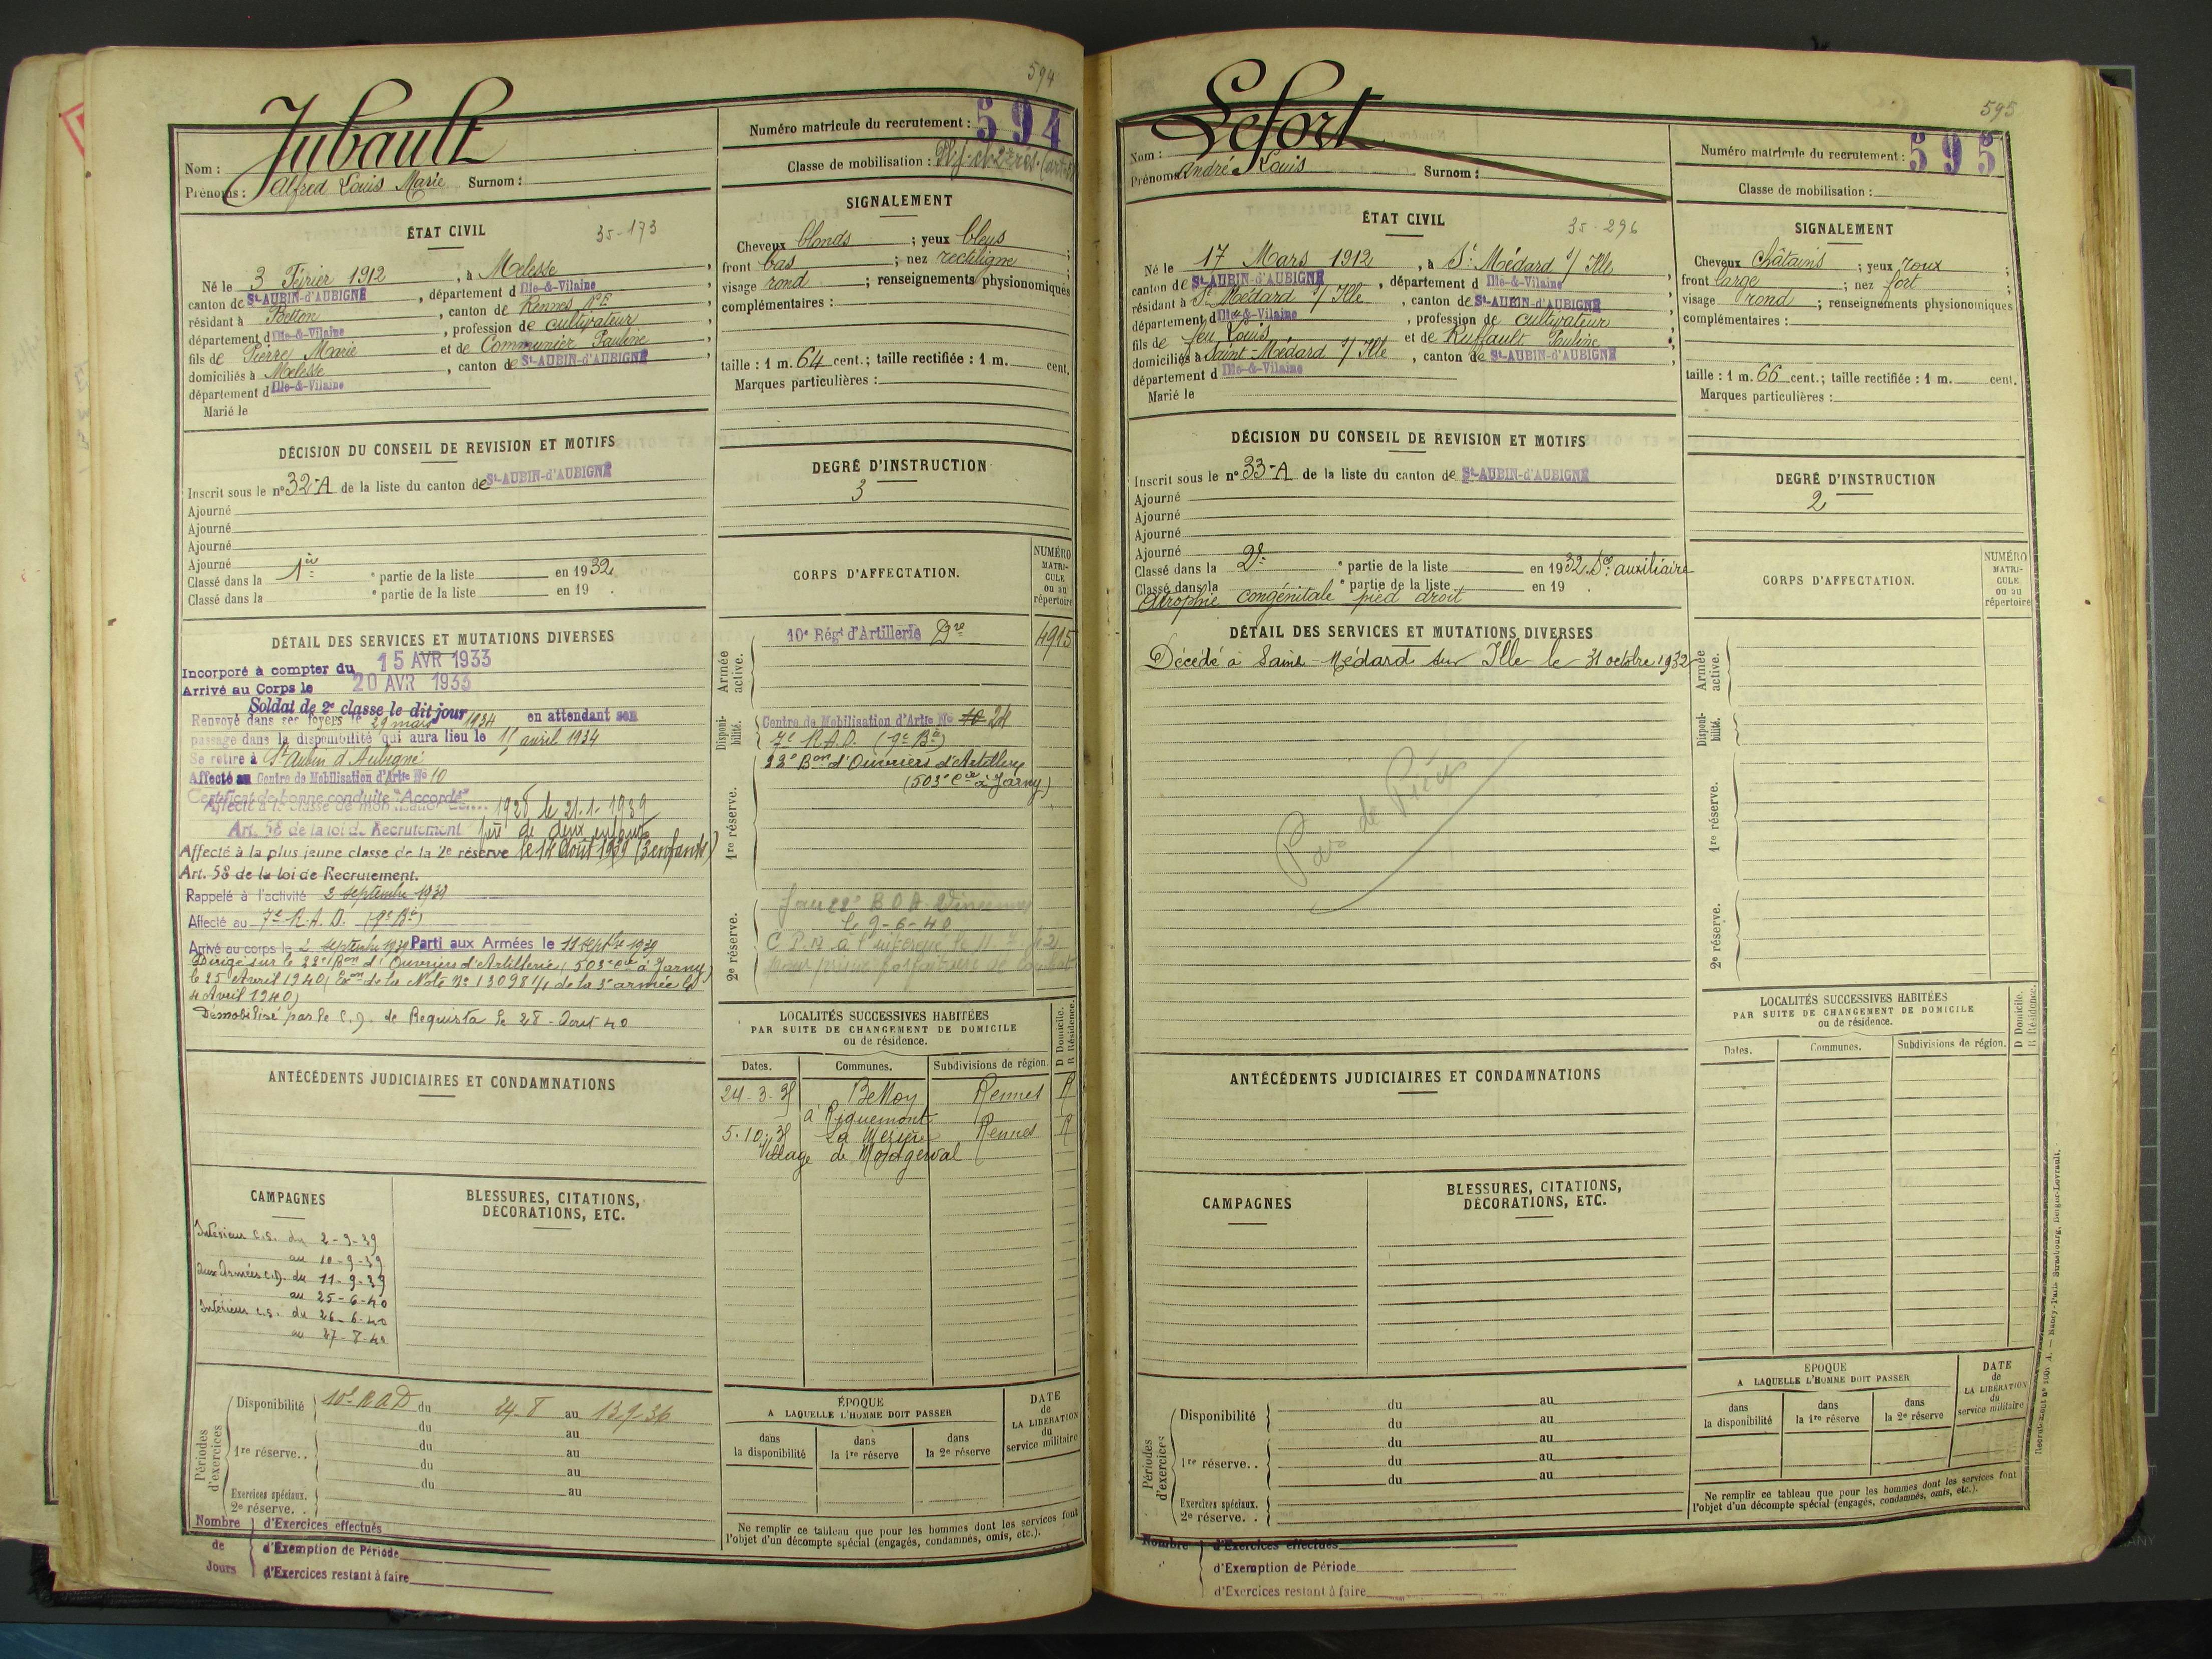 594
Jubault
Nom :
Prénoms : Alfred Louis Marie Surnom :
Numéro matricule du recrutement : 594
Classe de mobilisation :
ÉTAT CIVIL
35-173
Né le 3 Février 1912, à Melesse,
canton de St-AUBIN-d'AUBIGNÉ, département d Ille-&-Vilaine
résidant à Betton, canton de Rennes N.E,
département d Ille-&-Vilaine, profession de cultivateur,
fils de Pierre Marie et de Communier Pauline
domiciliés à Melesse, canton de St-AUBIN-d'AUBIGNÉ
département d Ille-&-Vilaine
Marié le
SIGNALEMENT
Cheveux blonds ; yeux bleus ;
front bas ; nez rectiligne ;
visage rond ; renseignements physionomiques
complémentaires :
taille : 1 m. 64 cent.; taille rectifiée : 1 m. cent.
Marques particulières :
DÉCISION DU CONSEIL DE REVISION ET MOTIFS
Inscrit sous le n° 32-A de la liste du canton de St-AUBIN-d'AUBIGNÉ
Ajourné
Ajourné
Ajourné
Ajourné
Classé dans la 1re ° partie de la liste en 1932
Classé dans la ° partie de la liste en 19 .
DEGRÉ D'INSTRUCTION
3
CORPS D'AFFECTATION.
NUMÉRO
MATRI-
CULE
ou au
répertoire
DÉTAIL DES SERVICES ET MUTATIONS DIVERSES
Incorporé à compter du 15 AVR 1933
Arrivé au Corps le 20 AVR 1933
Soldat de 2e classe le dit jour
Renvoyé dans ses foyers le 29 mars 1934 en attendant son
passage dans la disponibilité qui aura lieu le 15 avril 1934
Se retire à St Aubin d'Aubigné
Affecté au Centre de Mobilisation d'Artie No 10
Certificat de bonne conduite "Accordé"
Affecté à la classe de mobilisation de.... 1928 le 21-1-1939
Art. 58 de la loi de Recrutement père de deux enfants
Affecté à la plus jeune classe de la 2e réserve le 14 août 1939 (3 enfants)
Art. 58 de la loi de Recrutement.
Rappelé à l'activité 2 septembre 1939
Affecté au 7e R.A.D. (9e Bie)
Arrivé au corps le 2 septembre 1939 Parti aux Armées le 11 septbre 1939
Dirigé sur le 22e Bon d'Ouvriers d'Artillerie (503e Cie à Jarny)
le 25 Avril 1940 (Exon de la Note No 13098 1/1 de la 3e armée du
4 Avril 1940)
Démobilisé par le C.D. de Requista le 28 - Aout 40
Armée
active.
10e Régt d'Artillerie Dre 4915
Disponi-
bilité.
Centre de Mobilisation d'Artie No 10 24
7e R.A.D. (9e Bie)
1re réserve.
22e Bon d'Ouvriers d'Artillerie
(503e Cie à Jarny)
2e réserve.
B O A Vincennes
le 9-6-40
LOCALITÉS SUCCESSIVES HABITÉES
PAR SUITE DE CHANGEMENT DE DOMICILE
ou de résidence.
D Domicile.
R Résidence.
Dates. Communes. Subdivisions de région.
24-3-35 Rennes R
5-10-35 La Mézière Rennes R
Village de Montgerval
ANTÉCÉDENTS JUDICIAIRES ET CONDAMNATIONS
CAMPAGNES
Intérieur C.S. du 2-9-39
au 10-9-39
aux Armées C.D. du 11-9-39
au 25-6-40
Intérieur C.S. du 26-6-40
au 27-8-40
BLESSURES, CITATIONS,
DÉCORATIONS, ETC.
Périodes
d'exercices
Disponibilité 10e RAD du 24-8 au 13-9-36
du au
1re réserve.. du au
du au
du au
Exercices spéciaux.
2e réserve. .
Nombre
de
Jours
d'Exercices effectués
d'Exemption de Période
d'Exercices restant à faire
ÉPOQUE
A LAQUELLE L'HOMME DOIT PASSER
dans
la disponibilité
dans
la 1re réserve
dans
la 2e réserve
DATE
de
LA LIBÉRATION
du
service militaire
Ne remplir ce tableau que pour les hommes dont les services font
l'objet d'un décompte spécial (engagés, condamnés, omis, etc.).
595
Lefort
Nom :
Prénoms André Louis Surnom :
Numéro matricule du recrutement : 595
Classe de mobilisation :
ÉTAT CIVIL
35-296
Né le 17 Mars 1912, à St Médard s/ Ille,
canton de St-AUBIN-d'AUBIGNÉ, département d Ille-&-Vilaine
résidant à St Médard s/ Ille, canton de St-AUBIN-d'AUBIGNÉ
département d Ille-&-Vilaine, profession de cultivateur
fils de feu Louis et de Ruffault Pauline
domiciliés à Saint-Médard s/ Ille, canton de St-AUBIN-d'AUBIGNÉ
département d Ille-&-Vilaine
Marié le
SIGNALEMENT
Cheveux Châtains ; yeux roux ;
front large ; nez fort ;
visage rond ; renseignements physionomiques
complémentaires :
taille : 1 m. 66 cent.; taille rectifiée : 1 m. cent.
Marques particulières :
DÉCISION DU CONSEIL DE REVISION ET MOTIFS
Inscrit sous le n° 33-A de la liste du canton de St-AUBIN-d'AUBIGNÉ
Ajourné
Ajourné
Ajourné
Ajourné
Classé dans la 2e ° partie de la liste en 1932 Sce auxiliaire
Classé dans la ° partie de la liste en 19 .
Atrophie congénitale pied droit
DEGRÉ D'INSTRUCTION
2
CORPS D'AFFECTATION.
NUMÉRO
MATRI-
CULE
ou au
répertoire
DÉTAIL DES SERVICES ET MUTATIONS DIVERSES
Décédé à Saint-Médard sur Ille le 31 octobre 1932
Pas de Pièces
Armée
active.
Disponi-
bilité.
1re réserve.
2e réserve.
LOCALITÉS SUCCESSIVES HABITÉES
PAR SUITE DE CHANGEMENT DE DOMICILE
ou de résidence.
D Domicile.
R Résidence.
Dates. Communes. Subdivisions de région.
ANTÉCÉDENTS JUDICIAIRES ET CONDAMNATIONS
CAMPAGNES
BLESSURES, CITATIONS,
DÉCORATIONS, ETC.
Périodes
d'exercices
Disponibilité du au
du au
1re réserve. . du au
du au
du au
Exercices spéciaux.
2e réserve. .
Nombre
d'Exercices effectués
d'Exemption de Période
d'Exercices restant à faire
ÉPOQUE
A LAQUELLE L'HOMME DOIT PASSER
dans
la disponibilité
dans
la 1re réserve
dans
la 2e réserve
DATE
de
LA LIBÉRATION
du
service militaire
Ne remplir ce tableau que pour les hommes dont les services font
l'objet d'un décompte spécial (engagés, condamnés, omis, etc.).